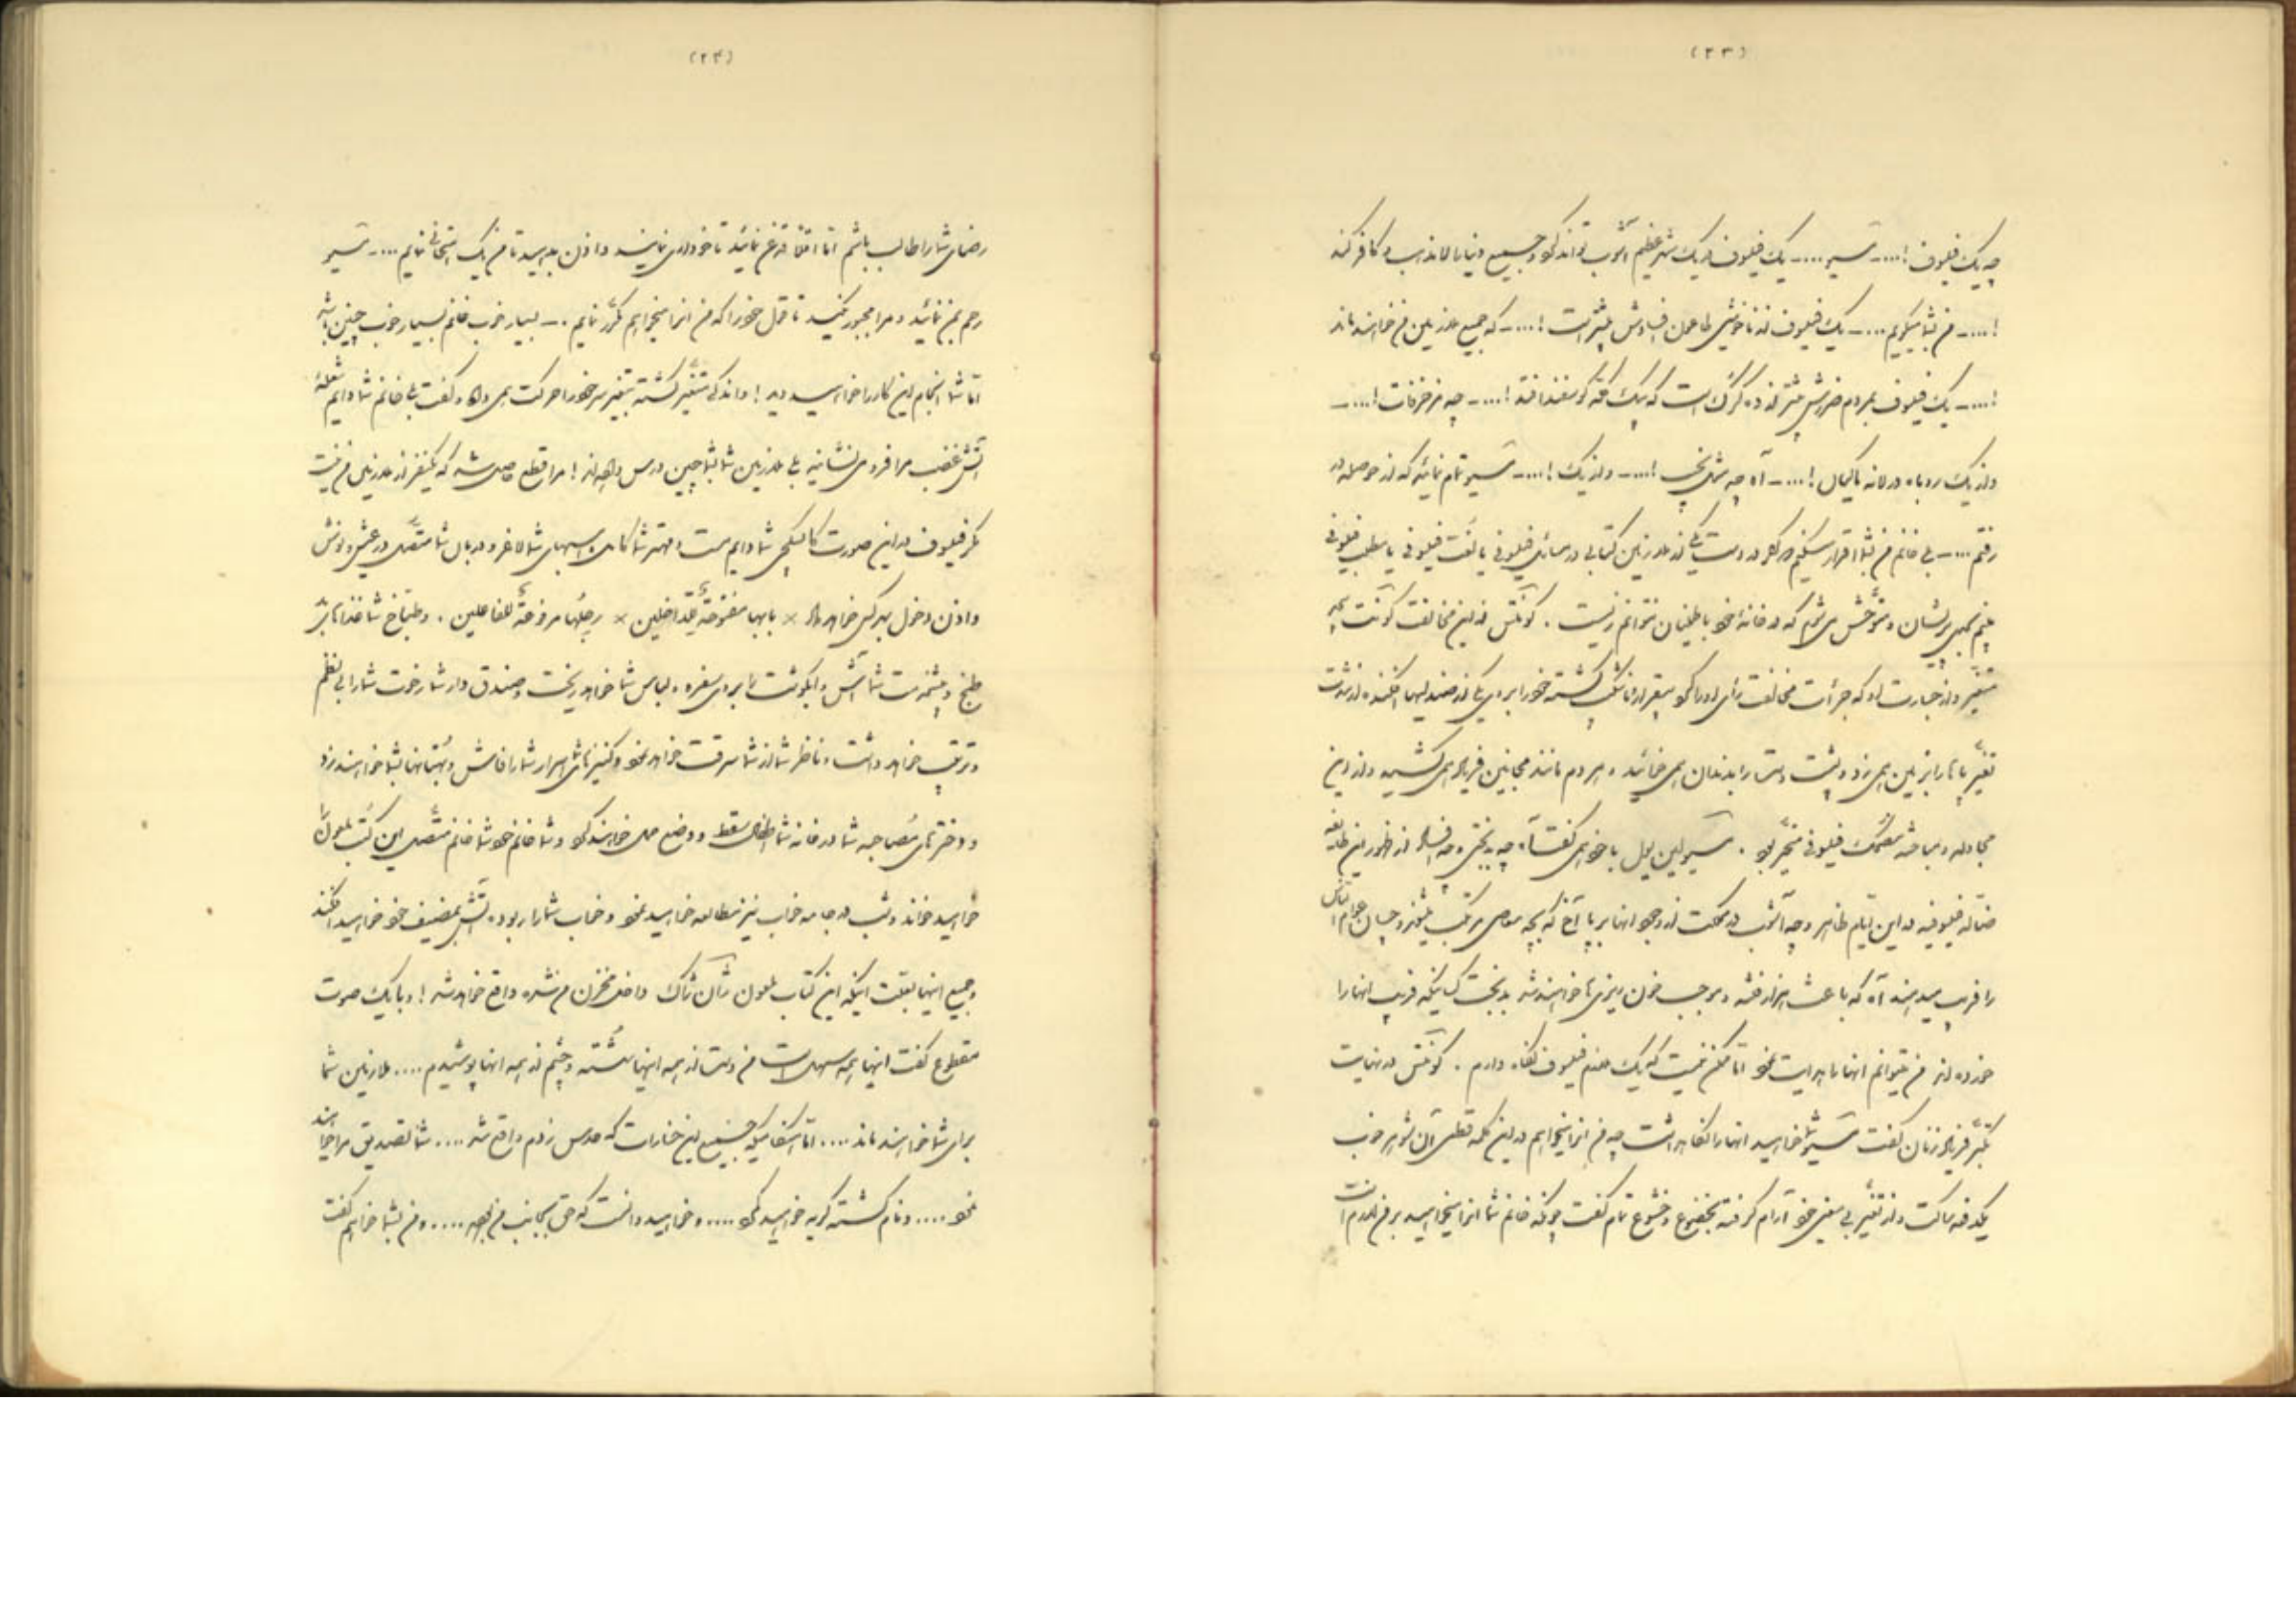 (۲۳)
چه یک فیلسوف !.... مسیو .... یک فیلسوف در یک شهر عظیم آشوب تواند کرد و جمیع دنیا را لامذهب و کافر کند
!.... من بشما میگویم .... یک فیلسوف از ناخوشی طاعون افسادش بیشتر است !.... که جمیع ملازمین من خواهند ماند
!.... یک فیلسوف بمردم ضررش بیشتر از ده گرگ است که بیک گله گوسفند افتد !.... چه مزخرفات !....
و از یک روباه در لانه ماکیان !.... آه چه شوی بدبختی !.... و از یک !.... مسیو تمام نمائید که از حوصله در
رفتم .... بلی خانم من بشما اقرار میکنم هرگاه در دست یکی از ملازمین کتابی در مسائل فیلسوفی یا لغت فیلسوفی یا مطلب فیلسوفی
بینم بحدی پریشان و متوحش می شوم که در خانه خود باطمینان نتوانم زیست . کونتس از این مخالفت کونت
متغیر و از جسارت او که جرأت مخالفت رأی او را کرد بیقرار و غضبناک گشته خود را بروی یکی از صندلیها افکنده از شدت
تغیر پاها را بزمین همی زد و پشت دست را بدندان همی خائید و هر دم مانند مجانین فریاد همی کشید و از این
مجادله و مباحثه مضحک فیلسوفی متحیر بود . مسیو لبن بول با خود همی گفت آه چه بدبختی و چه افساد از ظهور این طایفه
ضاله فیلسوفیه در این ایام ظاهر و چه آشوب در مملکت از وجود آنها برپا آخ که بچه معاصی مرتکب میشوند و چسان عوام الناس
را فریب میدهند آه که باعث هزار فتنه و موجب خون ریزی ها خواهند شد بدبخت کسانیکه فریب آنها را
خورده اند من میتوانم آنها را هدایت نمود اما ممکن نیست که یک خدم فیلسوف نگاه دارم . کونتس در نهایت
تکبر فریاد زنان گفت مسیو شما خواهید آنها را نگاه داشت چه من آنرا میخواهم در این کلمه قطعی آن شوهر خوب
یکدفعه ساکت و از تغیر بی معنی خود آرام گرفته بخضوع و خشوع تمام گفت چونکه خانم شما آنرا میخواهید بر من لازم است
(۲۴)
رضای شما را طالب باشم اما اقلاً قدغن نمائید تا خودداری نمایند و اذن بدهید تا من یک امتحانی نمایم .... مسیو
رحم بمن نمائید و مرا مجبور نکنید تا قول خود را که من آنرا میخواهم مکرر نمایم . – بسیار خوب خانم بسیار خوب چنین باشد
اما شما انجام این کار را خواهید دید ! و اندکی متغیر گشته بتغیر سر خود را حرکت همی داد و گفت بلی خانم شما دایم شعله
آتش غضب مرا فرو می نشانید بلی ملازمین شما بشما چنین درس داده اند ! مرا قطع حاصل شد که یکنفر از ملازمین من نیست
مگر فیلسوف در این صورت کالسکه چی شما دایم مست و مهتر شما کاهل و اسبهای شما لاغر و دربان شما متصل در عیش و نوش
و اذن دخول بهر کس خواهد داد × بابها مفتوحة للداخلین × رجلها مرفوعة للفاعلین . و طباخ شما غذاها را بد
طبخ و پیشخدمت شما آش و آبگوشت را بروی سفره و لباس شما خواهد ریخت و صندوق دار شما رخوت شما را بی نظم
و ترتیب خواهد داشت و ناظر شما از شما سرقت خواهد نمود و کنیزهای شما اسرار شما را فاش و بهتانها بشما خواهند زد
و دخترهای مصاحبه شما در خانه شما اطفال سقط و وضع حمل خواهند کرد و شما خانم خود شما خانم متصل این کتب ملعون را
خواهید خواند و شب در جامه خواب نیز مطالعه خواهید نمود و خواب شما را ربوده آتش بمضیف خود خواهید افکند
و جمیع اینها بعلت اینکه این کتاب ملعون ژان ژاک داخل مخزن من شده واقع خواهد شد ! و با یک صوت
مقطوع گفت اینها همه سهل است من دست از همه اینها شسته و چشم از همه آنها پوشیدم .... ملازمین شما
برای شما خواهند ماند .... اما هنگامیکه جمیع این خسارات که حدس زدم واقع شد .... شما تصدیق مرا خواهید
نمود .... و نادم گشته گریه خواهید کرد .... و خواهید دانست که حق بجانب من بوده .... و من بشما خواهم گفت